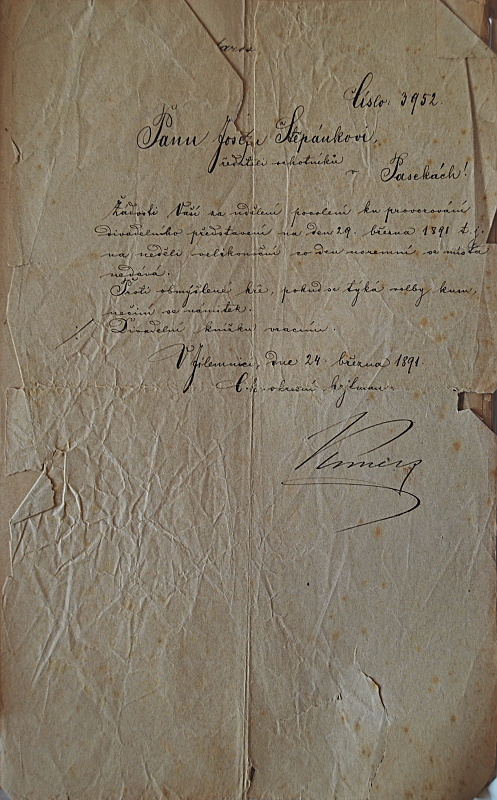 Číslo: 3952.
Panu Štěpánkovi,
řediteli ochotníků
v Pasekách!
Žádosti Vaší za udělení povolení ku provozování
divadelního představení na den 29. března 1891 t. j.
na neděli velikonoční co den normní se místa
nedává.
Proti obmýšlené hře, pokud se týká volby kusu,
nečiní se námitek.
Divadelní knížku vracím.
V Jilemnici, dne 24. března 1891.
C. k. okresní hejtman